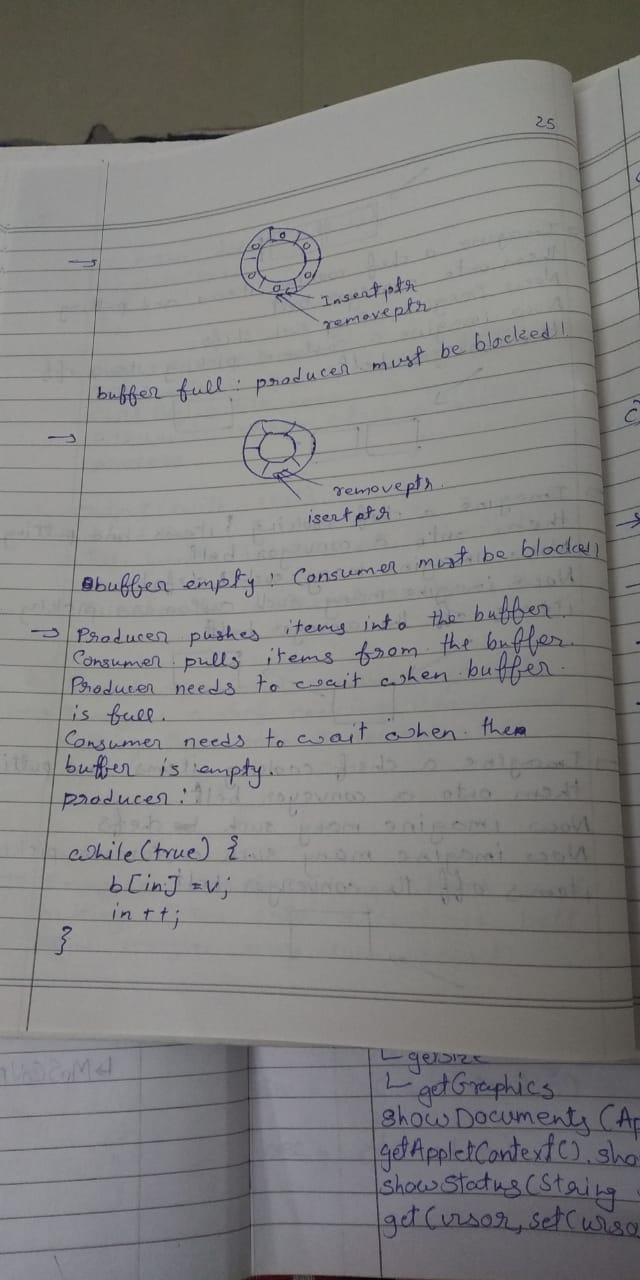 25
→
Insertptr
removeptr
buffer full : producer must be blocked!
→
removeptr.
isertptr
buffer empty : Consumer must be blocked!
→ Producer pushes items into the buffer.
Consumer pulls items from the buffer.
Producer needs to wait when buffer.
is full.
Consumer needs to wait when the
buffer is empty.
producer :
while(true) {
b[in] = v;
in ++;
}
getSize
└ getGraphics
showDocuments (Ap
getAppletContext(). sho
showStatus (String
getCursor, setCurso